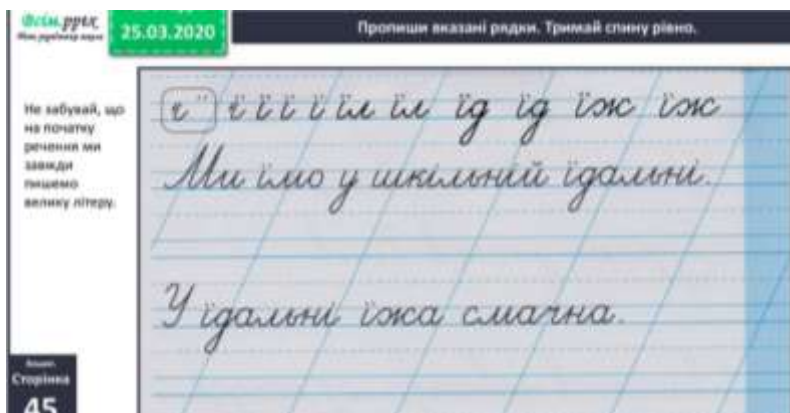 Всім.pptx
25.03.2020
Пропиши вказані рядки. Тримай спину рівно.
Не забувай, що
на початку
речення ми
завжди
пишемо
велику літеру.
ї ї ї ї ї їл їл їд їд їж їж
Ми їмо у шкільній їдальні.
У їдальні їжа смачна.
Сторінка
45